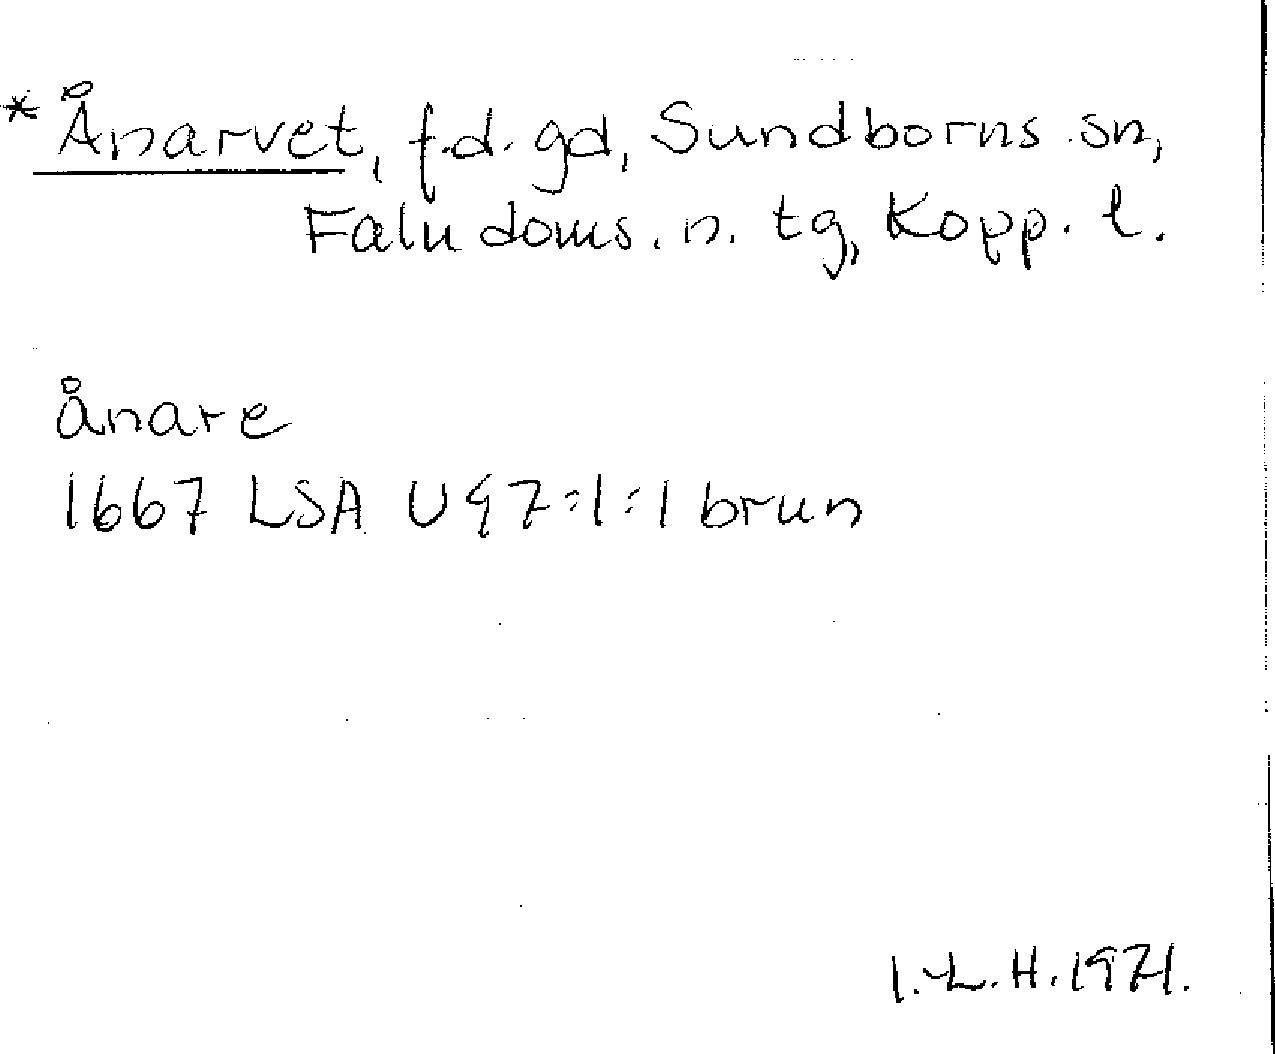 * Ånarvet, f.d. gd, Sundborns sn,
Falu doms. n. tg, Kopp. l.
ånare
1667 LSA U 97:1:1 brun
I.-L. H. 1971.